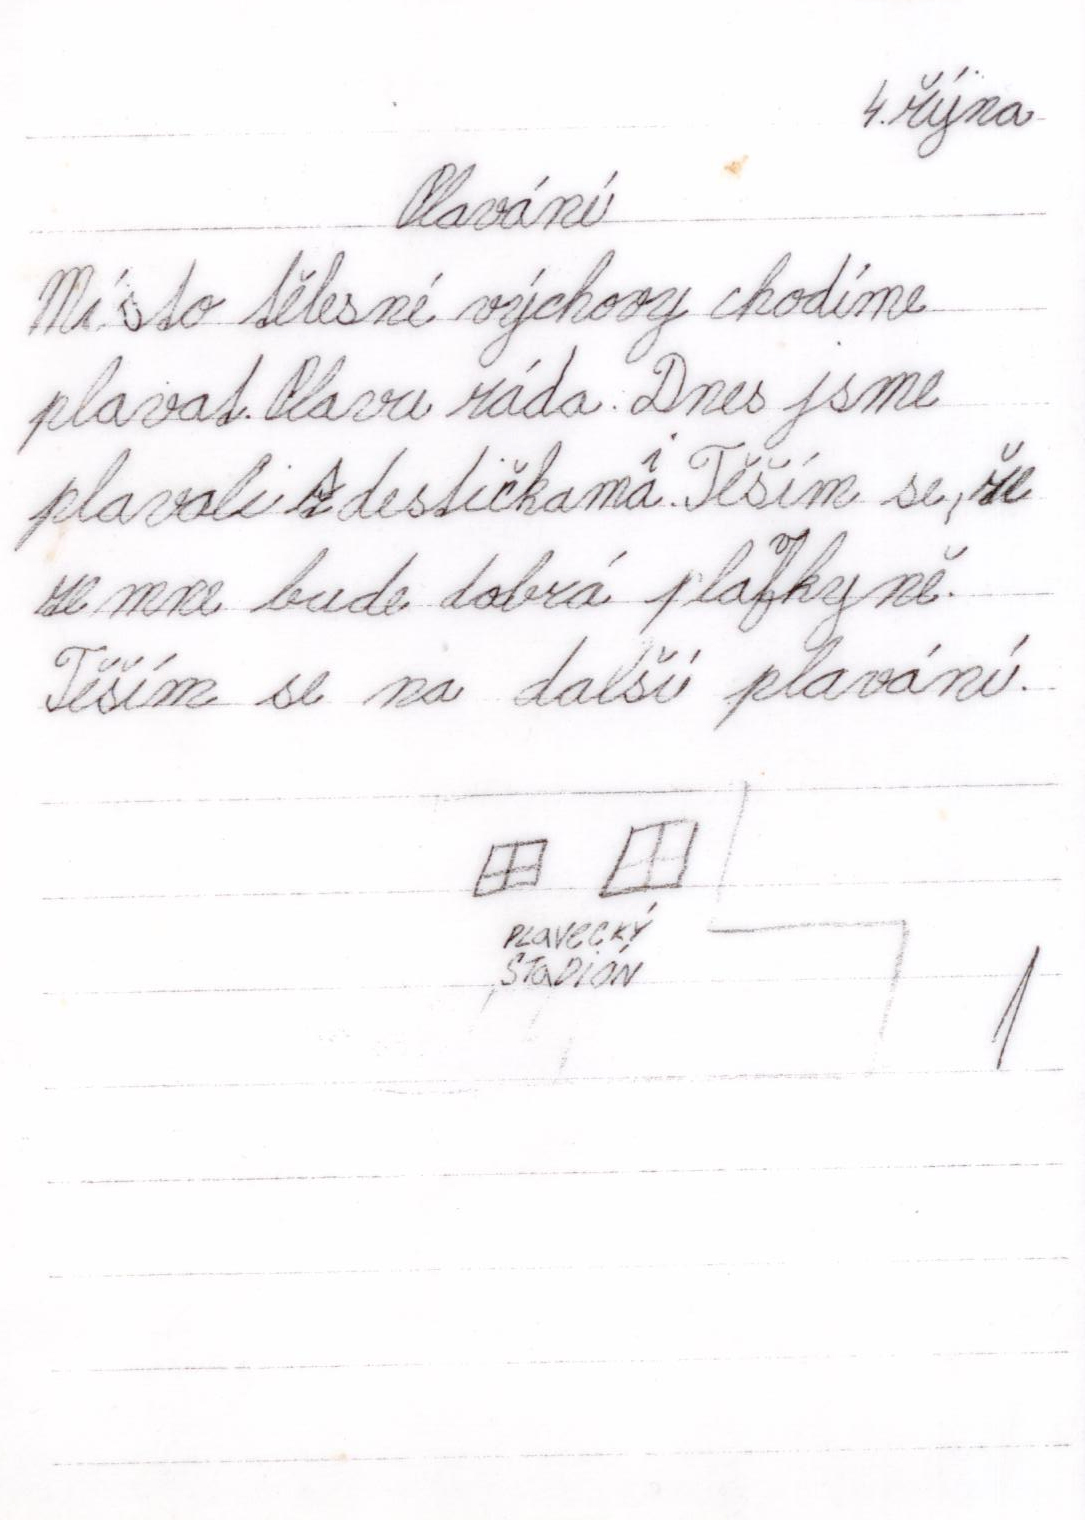 4. října
Plavání
Místo tělesné výchovy chodíme
plavat. Plavu ráda. Dnes jsme
plavali s destičkami. Těším se, že
ze mne bude dobrá plavkyně.
Těším se na další plavání.
PLAVECKÝ
STADIÓN
1